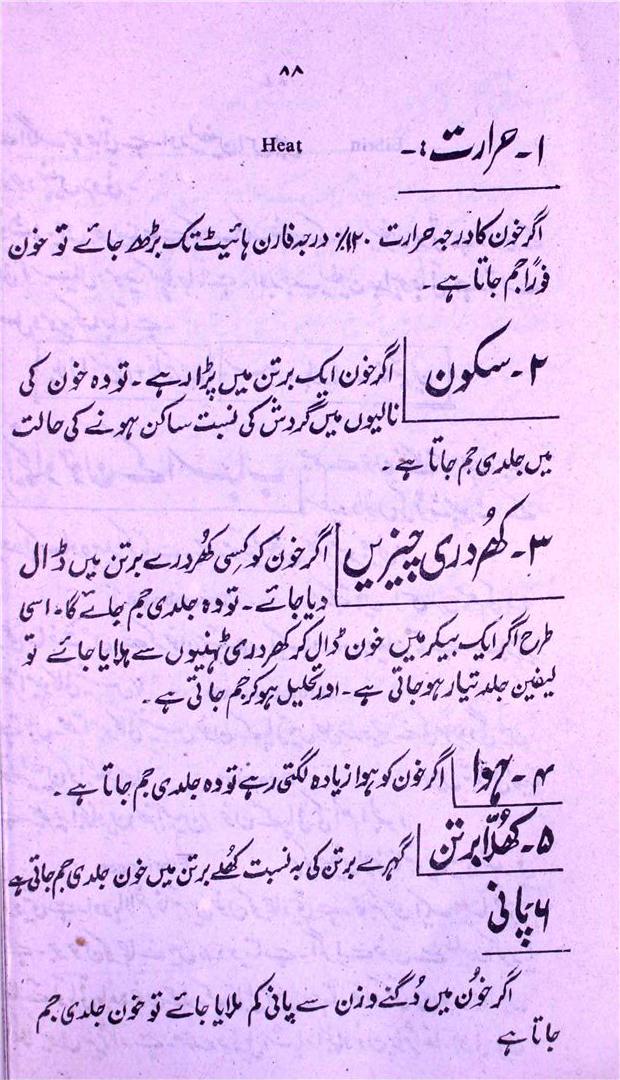 ۸۸
۱۔ حرارت :۔ Heat
اگر خون کا درجہ حرارت ۱۲۰٪ درجہ فارن ہائیٹ تک بڑھ جائے تو خون
فوراً جم جاتا ہے۔
۲۔ سکون اگر خون ایک برتن میں پڑا رہے۔ تو وہ خون کی
نالیوں میں گردش کی نسبت ساکن ہونے کی حالت
میں جلدی جم جاتا ہے۔
۳۔ کھُردری چیزیں اگر خون کو کسی کھُردرے برتن میں ڈال
دیا جائے۔ تو وہ جلدی جم جائے گا۔ اسی
طرح اگر ایک بیکر میں خون ڈال کر کھردری ٹہنیوں سے ہلایا جائے تو
لیفین جلد تیار ہو جاتی ہے۔ اور تحلیل ہو کر جم جاتی ہے۔
۴۔ ہوا اگر خون کو ہوا زیادہ لگتی رہے تو وہ جلدی جم جاتا ہے۔
۵۔ کھُلا برتن گہرے برتن کی بہ نسبت کھُلے برتن میں خون جلدی جم جاتی ہے
۶ پانی
اگر خوُن میں دُگنے وزن سے پانی کم ملایا جائے تو خون جلدی جم
جاتا ہے